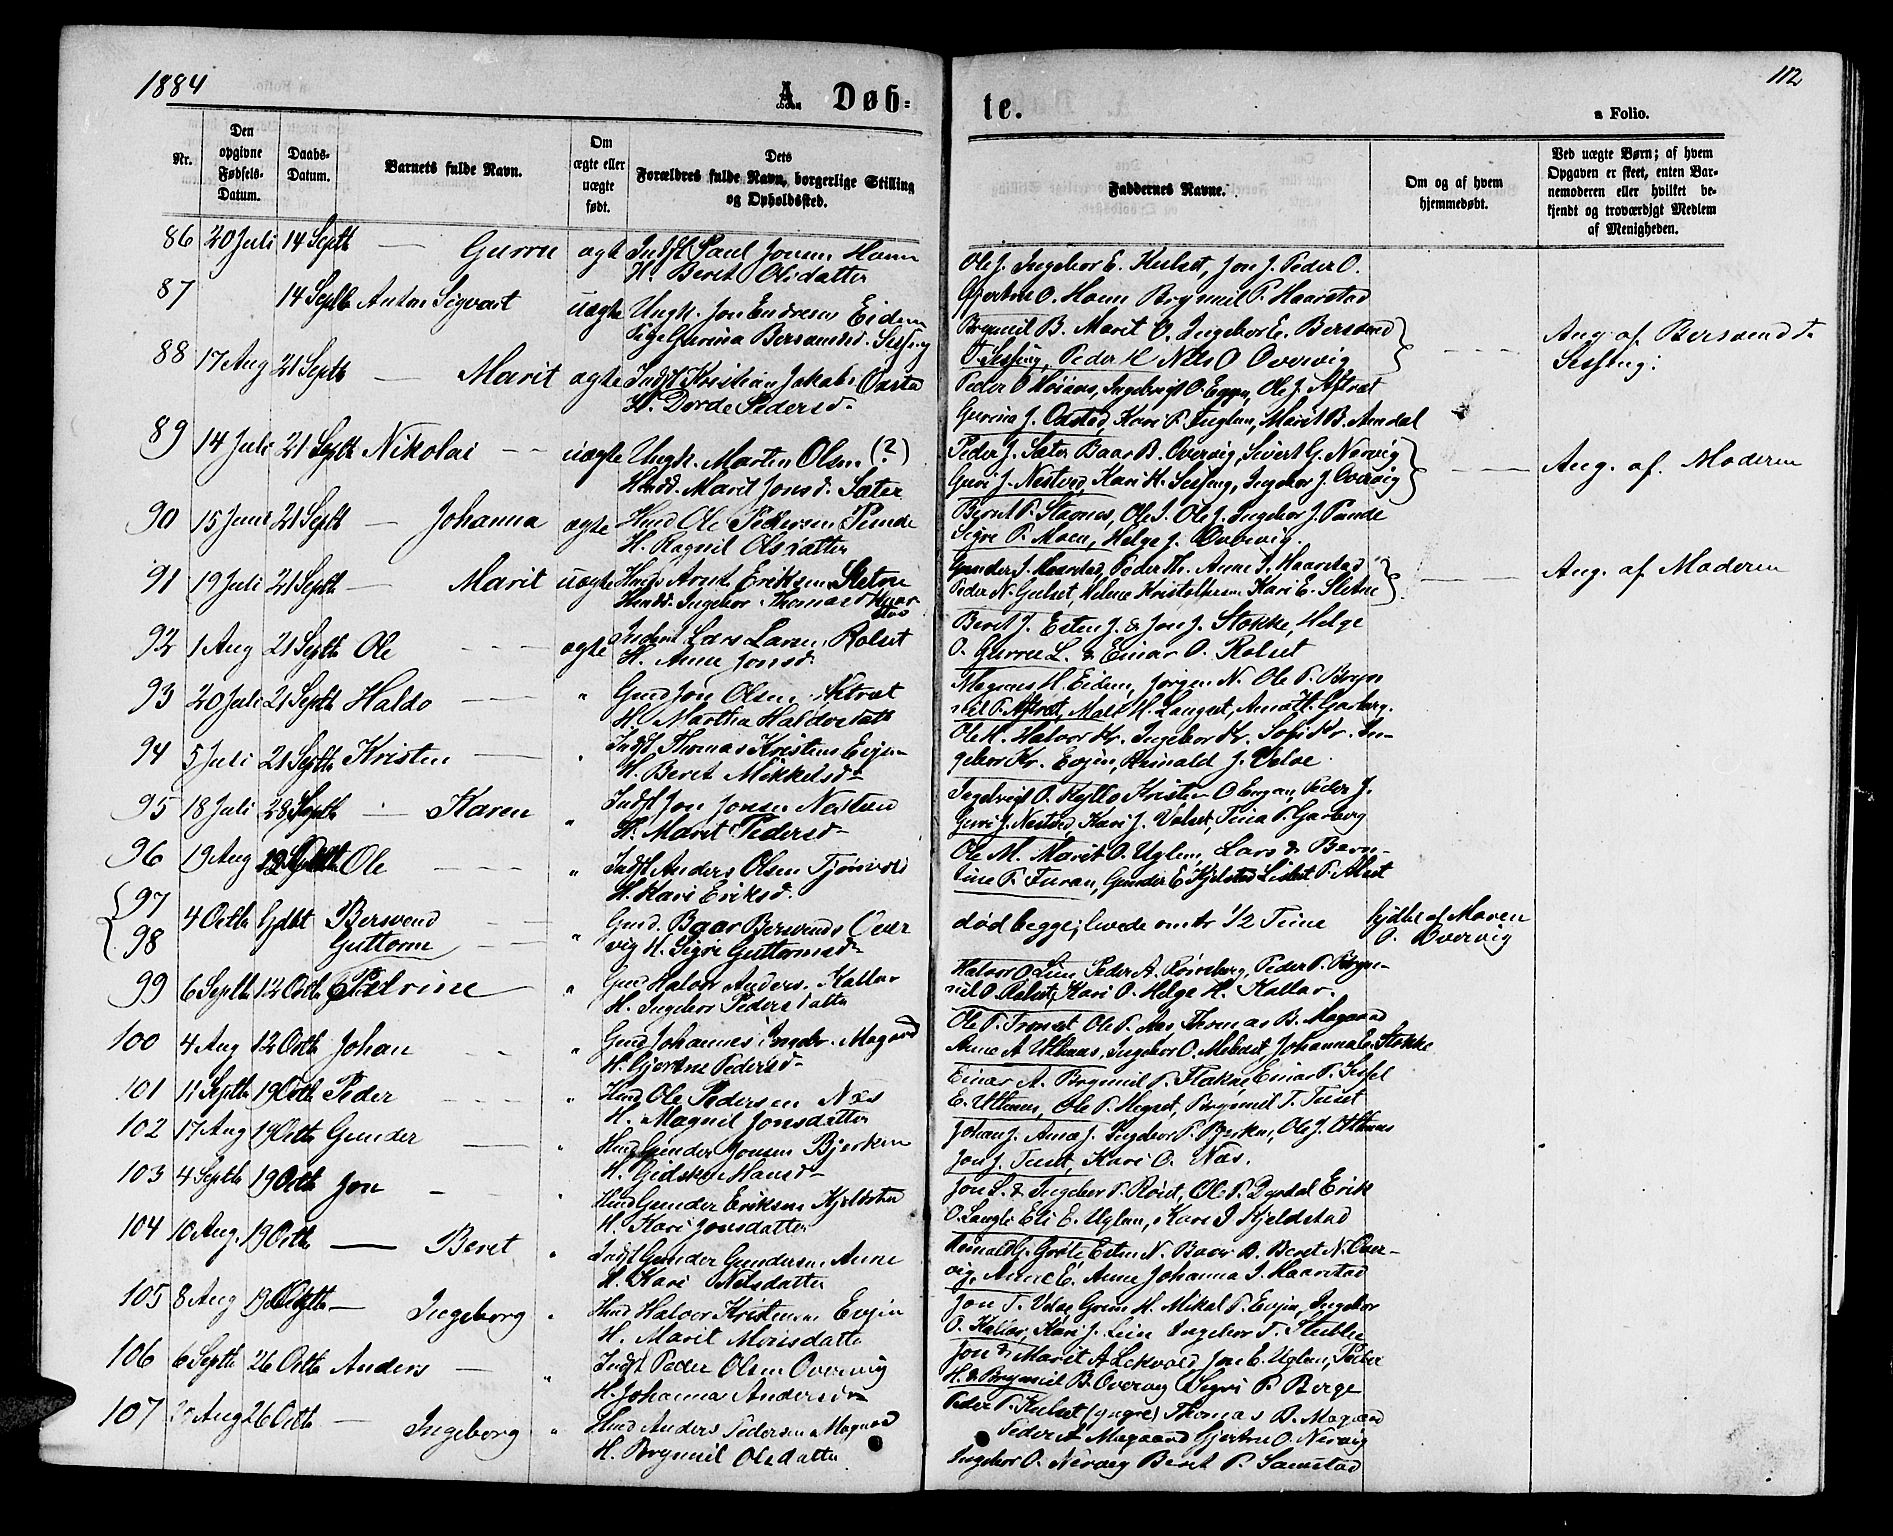 1884
112
A. Døb-
te.
a Folio.
Nr.
Den opgivne Fødsels-Datum.
Daabs-Datum.
Barnets fulde Navn.
Om ægte eller uægte født.
Dets Forældres fulde Navn, borgerlige Stilling og Opholdssted.
Faddernes Navne.
Om og af hvem hjemmedøbt.
Ved uægte Børn; af hvem Opgaven er skeet, enten Barnemoderen eller hvilket bekjendt og troværdigt Medlem af Menigheden.
86 20 Juli 14 Septb — Gurru ægte Indst Paul Jonsen Haan
H. Beret Olsdatter
Ole J. Ingebor E. Kulset, Jon J. Peder O.
Gjertru O. Haan Brynnil P. Haarstad
87 14 Septb Anton Sigvart uægte Ungk. Jon Endresen Eidem
Pige Gurina Bersvendsd. Sessing
Brynnil B. Marit O. Ingebor E. Bersvend
T. Sessing, Peder H Nels O Overvig
Ang af Bersvend T.
Sessing:
88 17 Aug 21 Septb — Marit ægte Indst Kristian Jakobs Oxstad
H. Dorde Pedersd.
Gurina J. Oxstad, Kari P. Fuglem, Marit B. Amdal
89 14 Juli 21 Septb Nikolai — uægte Ungk. Martin Olsen (?)
Marit Jonsd. Sæter
Peder J. Sæter Baar B. Overvig, Sivert G. Nervig
Guri J. Nestved, Kari H. Sessing, Ingebor J. Overvig
Ang. af Moderen
90 15 Juni 21 Septb — Johanna ægte Husd Ole Pedersen Punde
H. Ragnil Olsdatter
Bernt P. Stavnes, Ole I. Ole J. Ingebor J. Punde
Sigre P. Moen, Helge J. Overvig.
91 19 Juli 21 Septb — Marit uægte Arnt Eriksen Sletne
Ingebor Thomasd
Gunder J. Haarstad, Peder Th. Anne I. Haarstad
Peder N. Gulset, Helene Kristofersen Kari E. Sletne
Ang. af Moderen
92 1 Aug 21 Septb Ole — ægte Lars Larsen Rolset
H. Anne Jonsd.
Beret J. Esten J. & Jon J. Stokke, Helge
O. Gurru L. & Einar O. Rolset
93 20 Juli 21 Septb Haldo — " Gmd Jon Olsen Aftret
H. Martha Haldosdatt
Magnus H. Eidem, Jørgen N. Ole P. Bryn
nil P. Aftret, Malé H. Langset, Anna H. Garberg.
94 5 Juli 21 Septb Kristen — " Indst Thomas Kristens Evjen
H. Beret Mikkelsd.
Ole H. Halvor Kr. Ingebor Kr. Sofi Kr. In-
gebor Kr. Evjen, Reinald J. Velve.
95 18 Juli 28 Septb — Karen " Indst Jon Jonsen Nestved
H. Marit Pedersd.
Guri J. Nestved, Kari J. Velset, Tina P. Garberg
96 19 Aug Ole — " Indst Anders Olsen
H. Kari Eriksd.
Ole M. Marit O. Uglem, Lars & Beren-
tine P. Furan, Gunder E Kjelstad
97
98 4 Octb hjdbt Bersvend —
Guttorm — " Gmd. Baar Bersvends Over
vig H. Sigri Guttormsd.
død begge; levede omtr 1/2 Time
hjdbt af Maren
O. Overvig
99 6 Septb 12 Octb Petrine " Gmd Halvor Anders. Kallar
H. Ingebor Pedersdatter
nil O. Rolset, Kari O. Helge H. Kallar.
100 4 Aug 12 Octb Johan — " Gmd Johannes Mogaard
H. Gjertru Pedersd.
Ole P. Aas, Thomas B. Mogaard
Anne A Uthuus, Ingebor O. Johanna E. Stokke
101 11 Septb 19 Octb Peder — " Husd Ole Pedersen Næs
H. Magnil Jonsdatter
Einar A. Brynnil P. Flakne Einar P. Sessel
E. Uthuus, Ole P. Brynnil T. Tuset
102 17 Aug 19 Octb Gunder — " Husd Gunder Jonsen Bjerken
H. Gidsken Hansd.
Johan J. Anne J. Ingebor P. Bjerken, Ole J. Uthuus
Jon J. Tuset, Kari O. Næs.
103 4 Septb 19 Octb Jon — " Husd Gunder Eriksen Kjelstad
H. Kari Jonsdatter
Jon L. & Ingebor P. Røset, Ole P. Dyrdal Erik
O. Langli Eli E. Uglem, Kari I Kjeldstad
104 10 Aug. 19 Octb — Beret " Indst Gunder Gundersen Aune
H. Kari Nelsdatter
Reinald G. Grøte Esten N. Baar B. Beret N. Over-
vig, Anne E. Anne Johanna I. Haarstad
105 8 Aug 19 Octb — Ingeborg " Husd Halvor Kristensen Evjen
H. Marit Monsdatter
Jon T. Velve Grim H. Mikal P. Evjen, Ingebor
O. Kallar, Kari J. Lien Ingebor T. Stubbe
106 6 Septb 26 Octb Anders — " Indst Peder Olsen Overvig
H. Johanna Andersd.
Jon & Marit A Lekvold, Jon E. Uglem, Peder
H. & Brynnil B. Overvig Sigri P. Berge
107 Aug 26 Octb — Ingeborg " Husd Anders Pedersen Mogaard
H. Brynnil Olsdatter
Peder P. Kulset (yngre) Thomas B. Mogaard
Peder A Mogaard Gjertru O. Nervig
Ingebor O. Nervig Beret P. Samstad